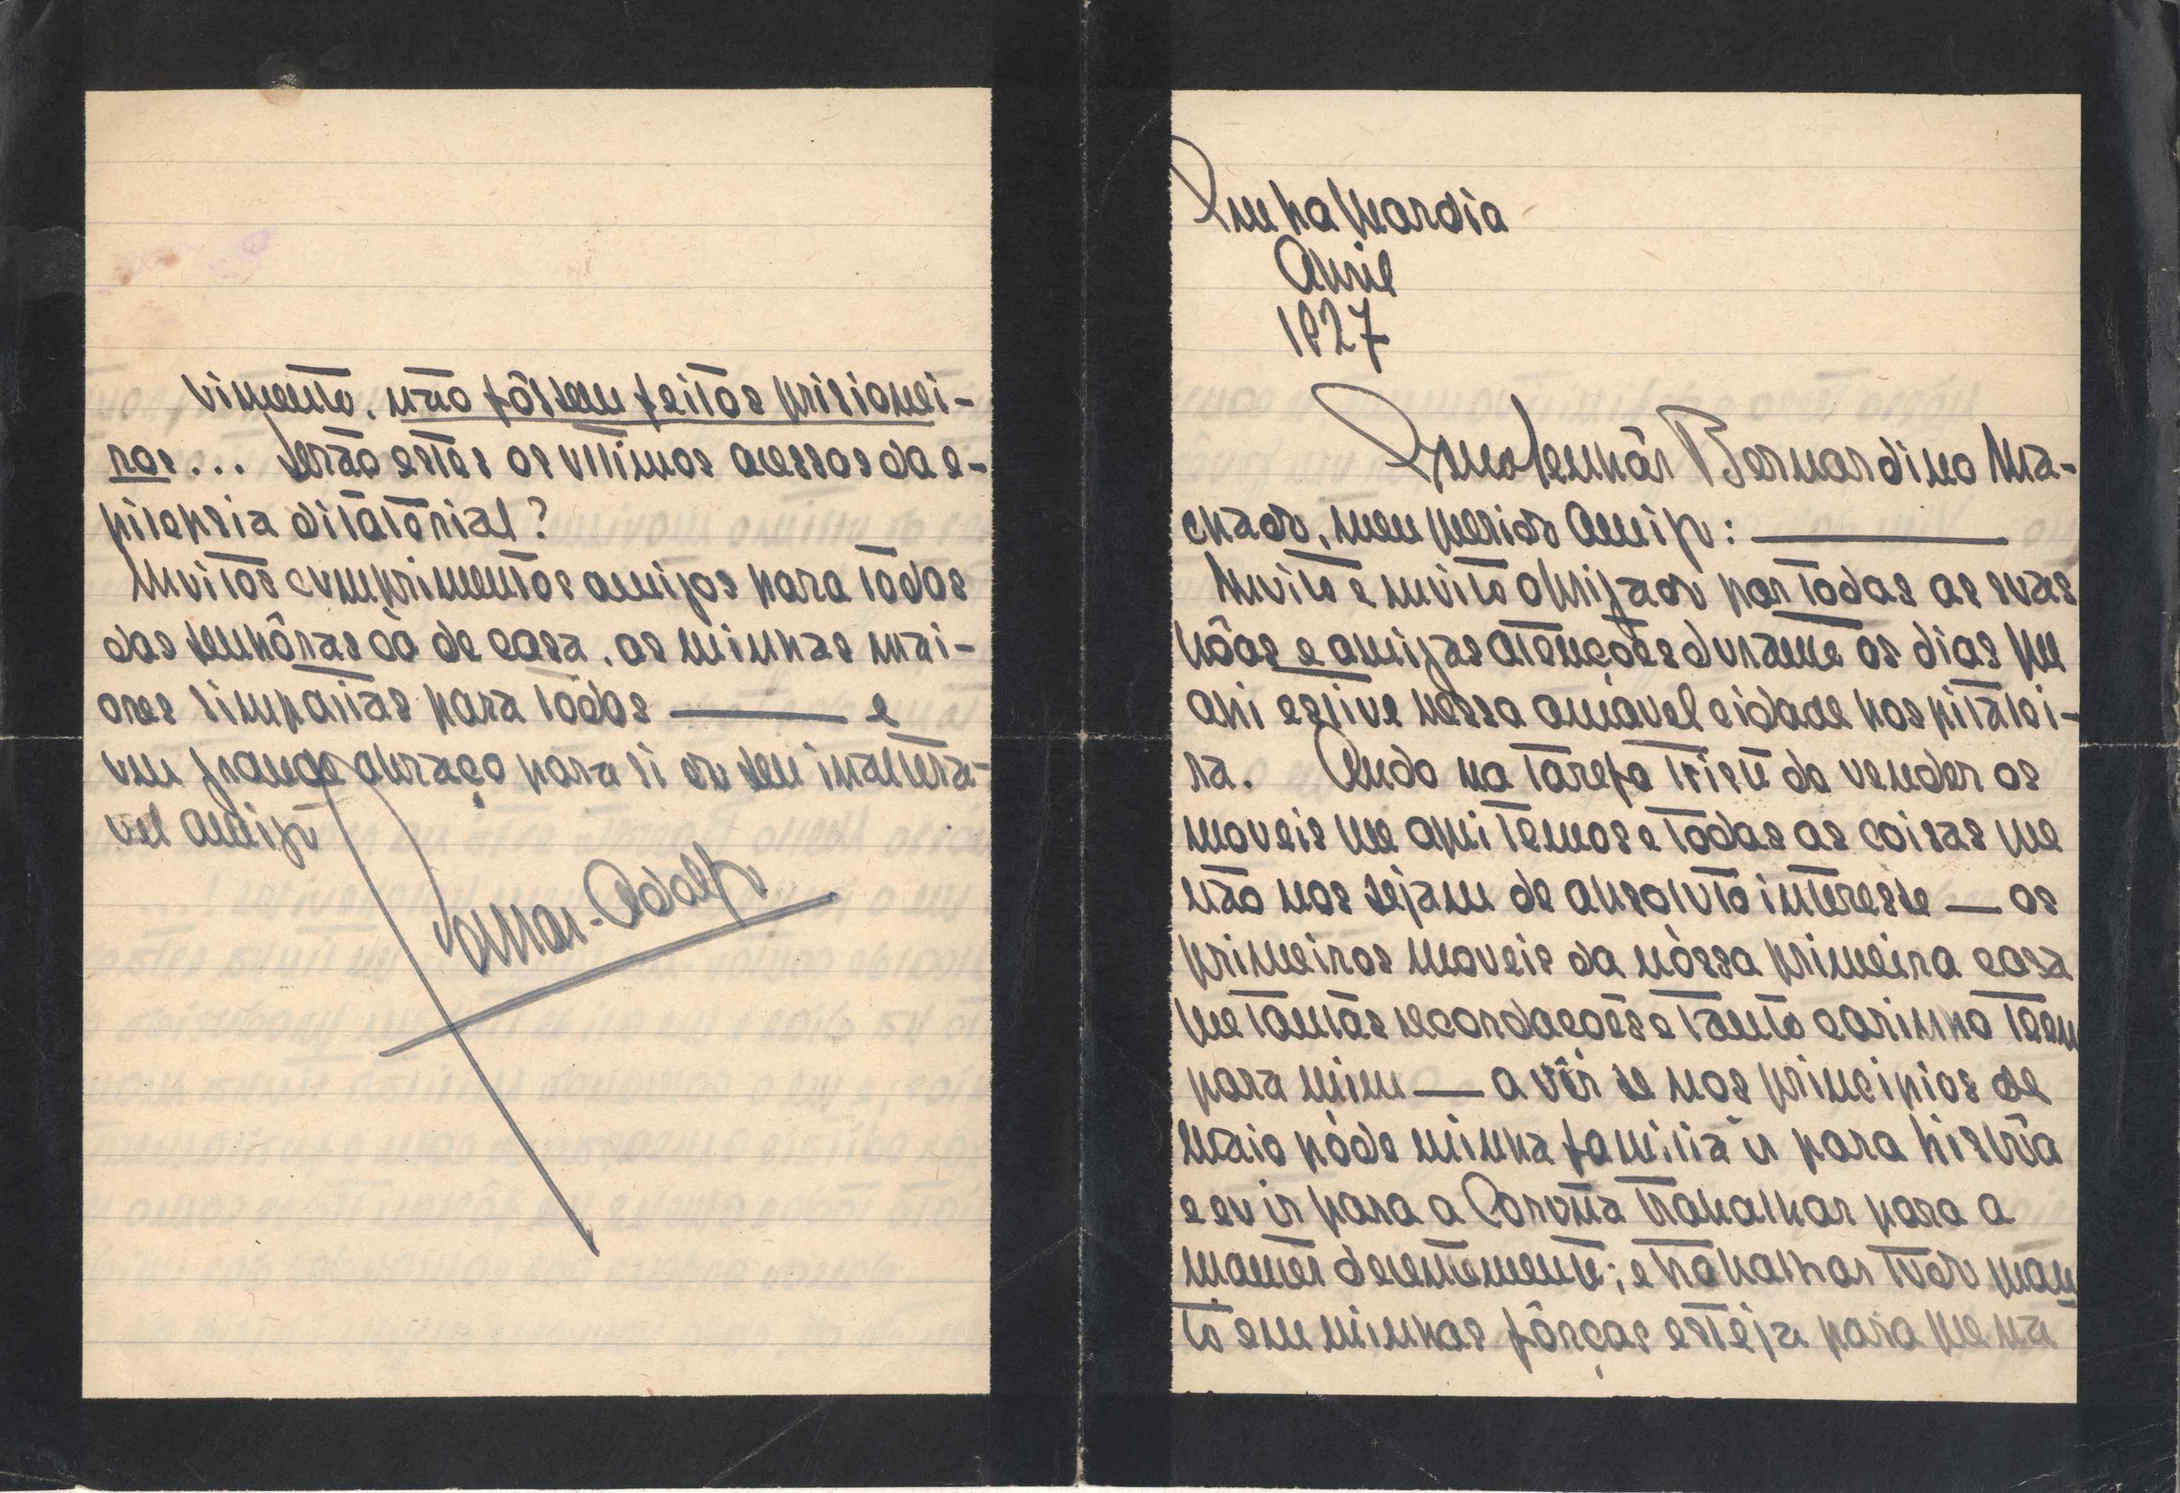 La Guardia
Abril
1927
Exmo Senhôr Bernardino Ma-
chado, meu querido amigo: ———
Muito e muito obrigado por todas as suas
bôas e amigas atenções durante os dias que
ahi estive nessa amavel cidade hospitalei-
ra. Ando na tarefa triste de vender os
moveis que aqui temos e todas as coisas que
não nos sejam de absoluto interesse — os
primeiros moveis da nóssa primeira casa
que tantas recordações e tanto carinho teem
para mim — a vêr se nos principios de
maio póde minha familia ir para Lisbôa
e eu ir para a Coruña trabalhar para a
manter decentemente; e trabalhar tudo quan
to em minhas fôrças esteja para que na
vimento, não fôssem feitos prisionei-
ros... Serão estes os ultimos acessos da e-
pilepsia ditatorial?
Muitos cumprimentos amigos para todas
das senhôras có de casa, as minhas mai-
ores simpatias para todos ——— e
um grande abraço para si do seu inaltera-
vel amigo
Adolfo